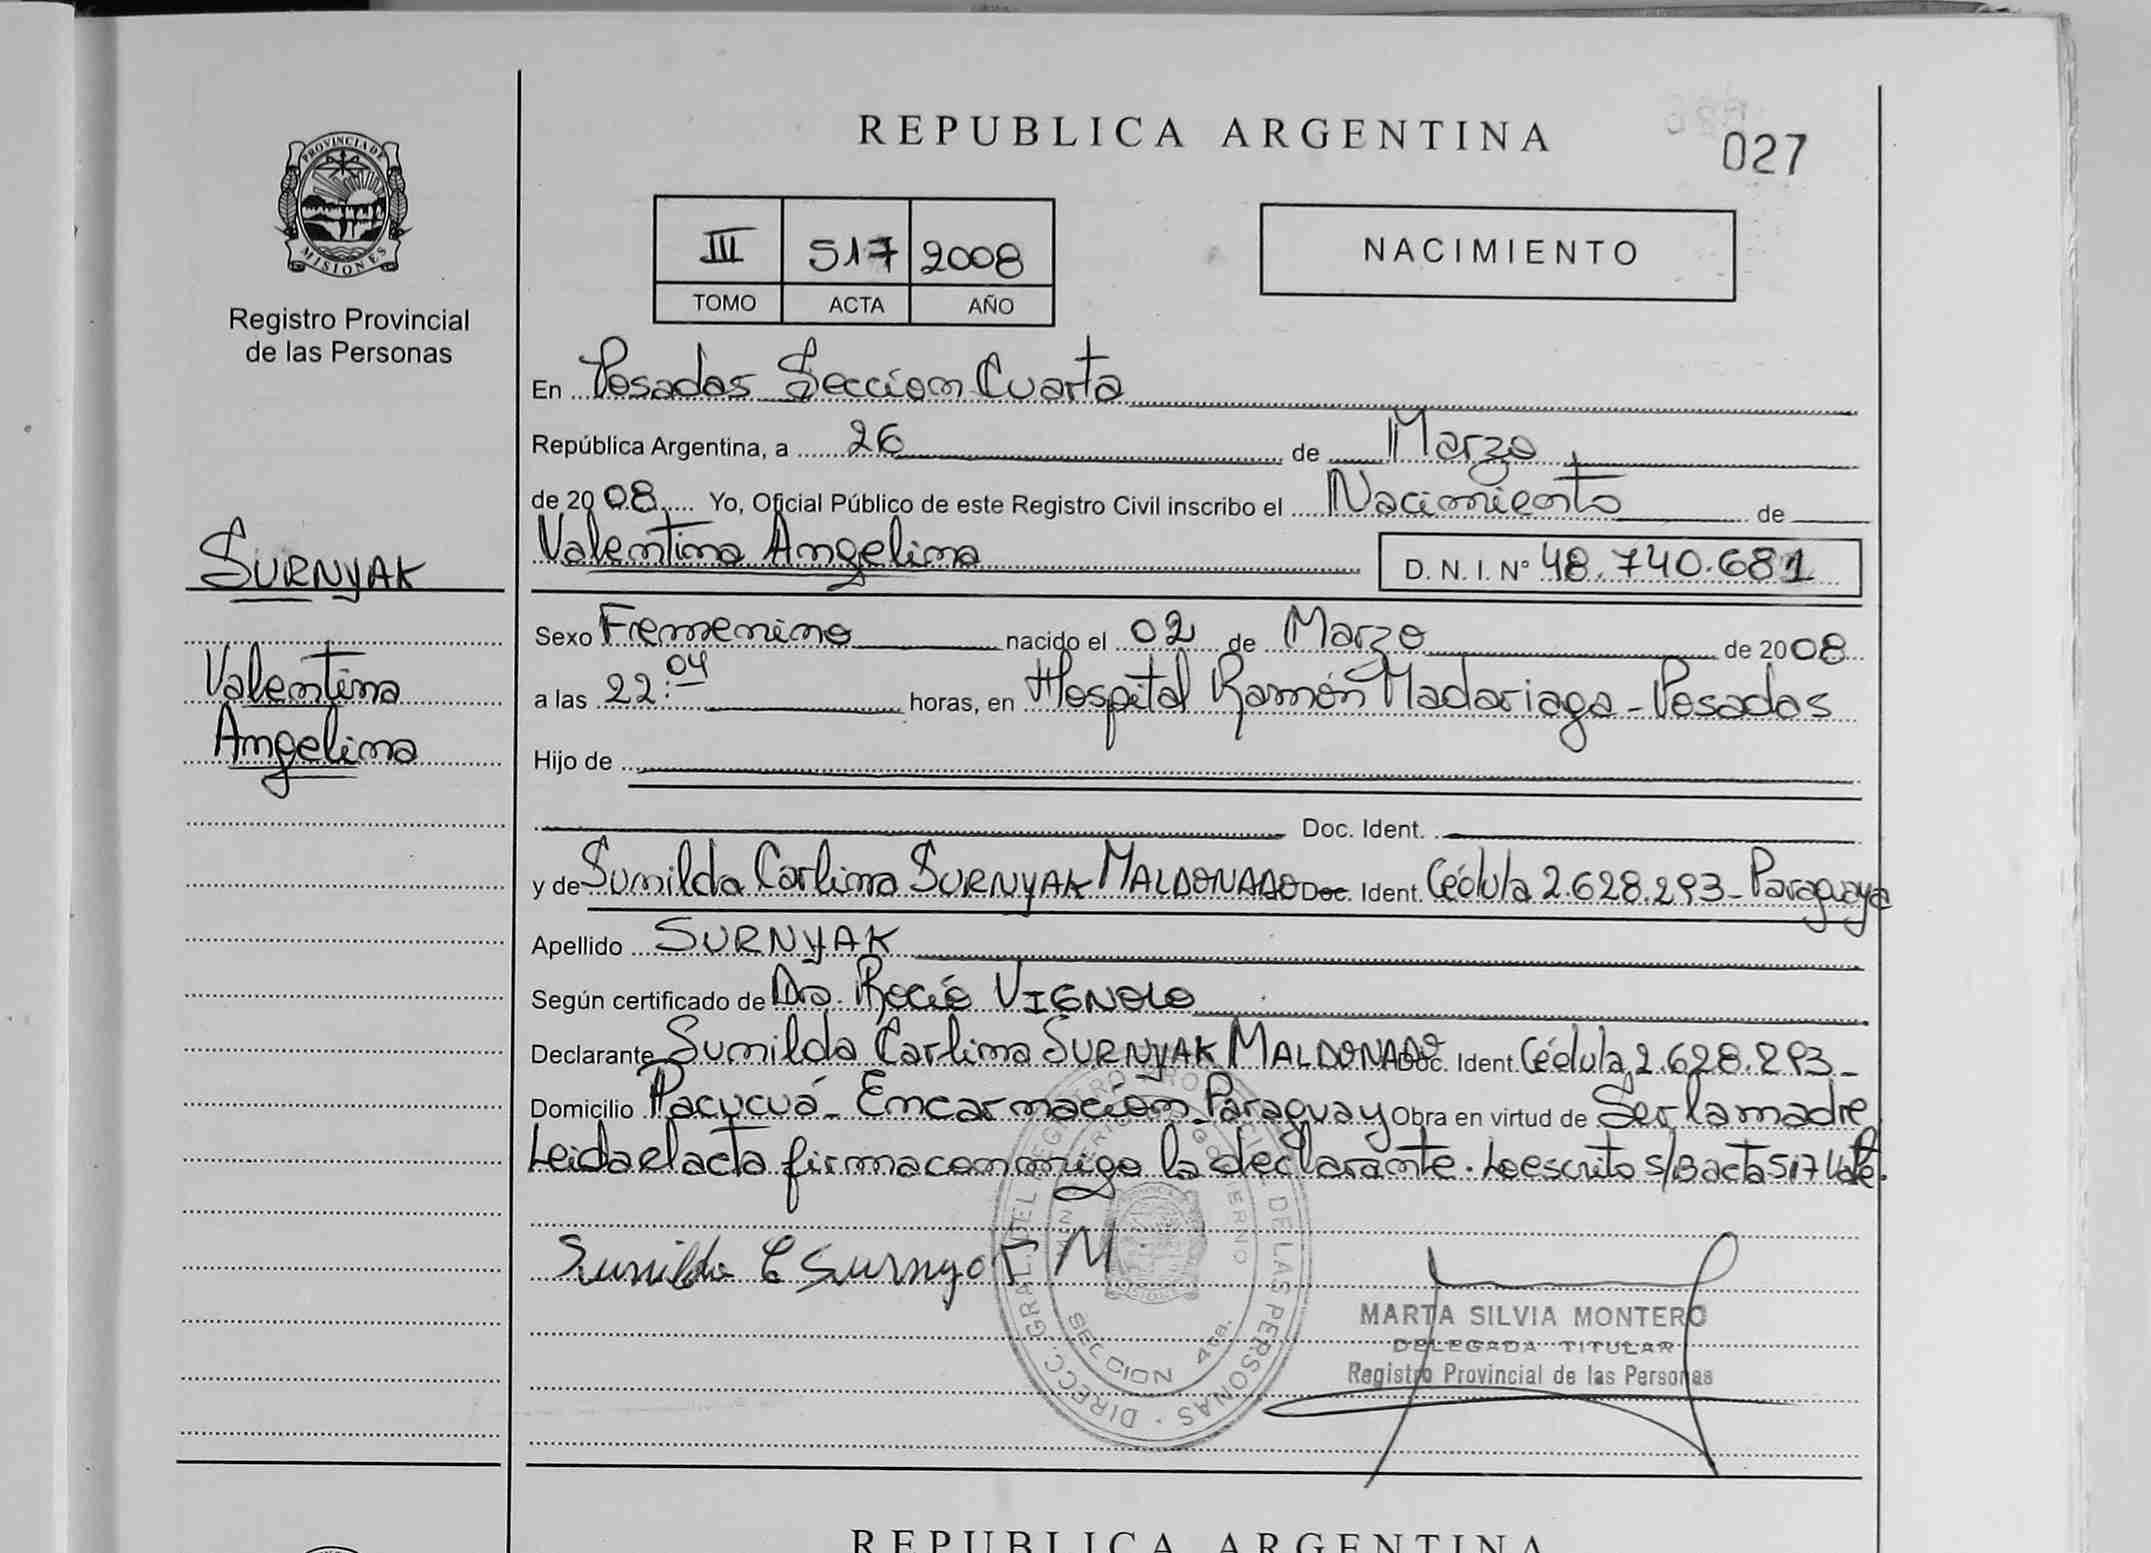 REPUBLICA ARGENTINA
027
PROVINCIA DE
MISIONES
Registro Provincial
de las Personas
III 517 2008
TOMO ACTA AÑO
NACIMIENTO
En Posadas Seccion Cuarta
República Argentina, a 26 de Marzo
de 2008 Yo, Oficial Público de este Registro Civil inscribo el Nacimiento de
Valentina Angelina D. N. I. N° 48.740.681
SURNYAK
Valentina
Angelina
Sexo Femenino nacido el 02 de Marzo de 2008
a las 22:04 horas, en Hospital Ramón Madariaga - Posadas
Hijo de
Doc. Ident.
y de Sunilda Carlina SURNYAK MALDONADO Doc. Ident. Cédula 2.628.293 - Paraguaya
Apellido SURNYAK
Según certificado de Dra. Rocío VIGNOLO
Declarante Sunilda Carlina SURNYAK MALDONADO Doc. Ident Cédula 2.628.293 -
Domicilio Pacucuá - Encarnación - Paraguay Obra en virtud de Ser la madre
Leida el acta firma conmigo la declarante. Lo escrito s/B acta 517 Vale.
Sunilda C Surnyak M
DIRECC. GRAL. DEL REGISTRO PROVINCIAL DE LAS PERSONAS
MINISTERIO DE GOBIERNO
SECCION 4ta.
MISIONES
MARTA SILVIA MONTERO
DELEGADA TITULAR
Registro Provincial de las Personas
REPUBLICA ARGENTINA